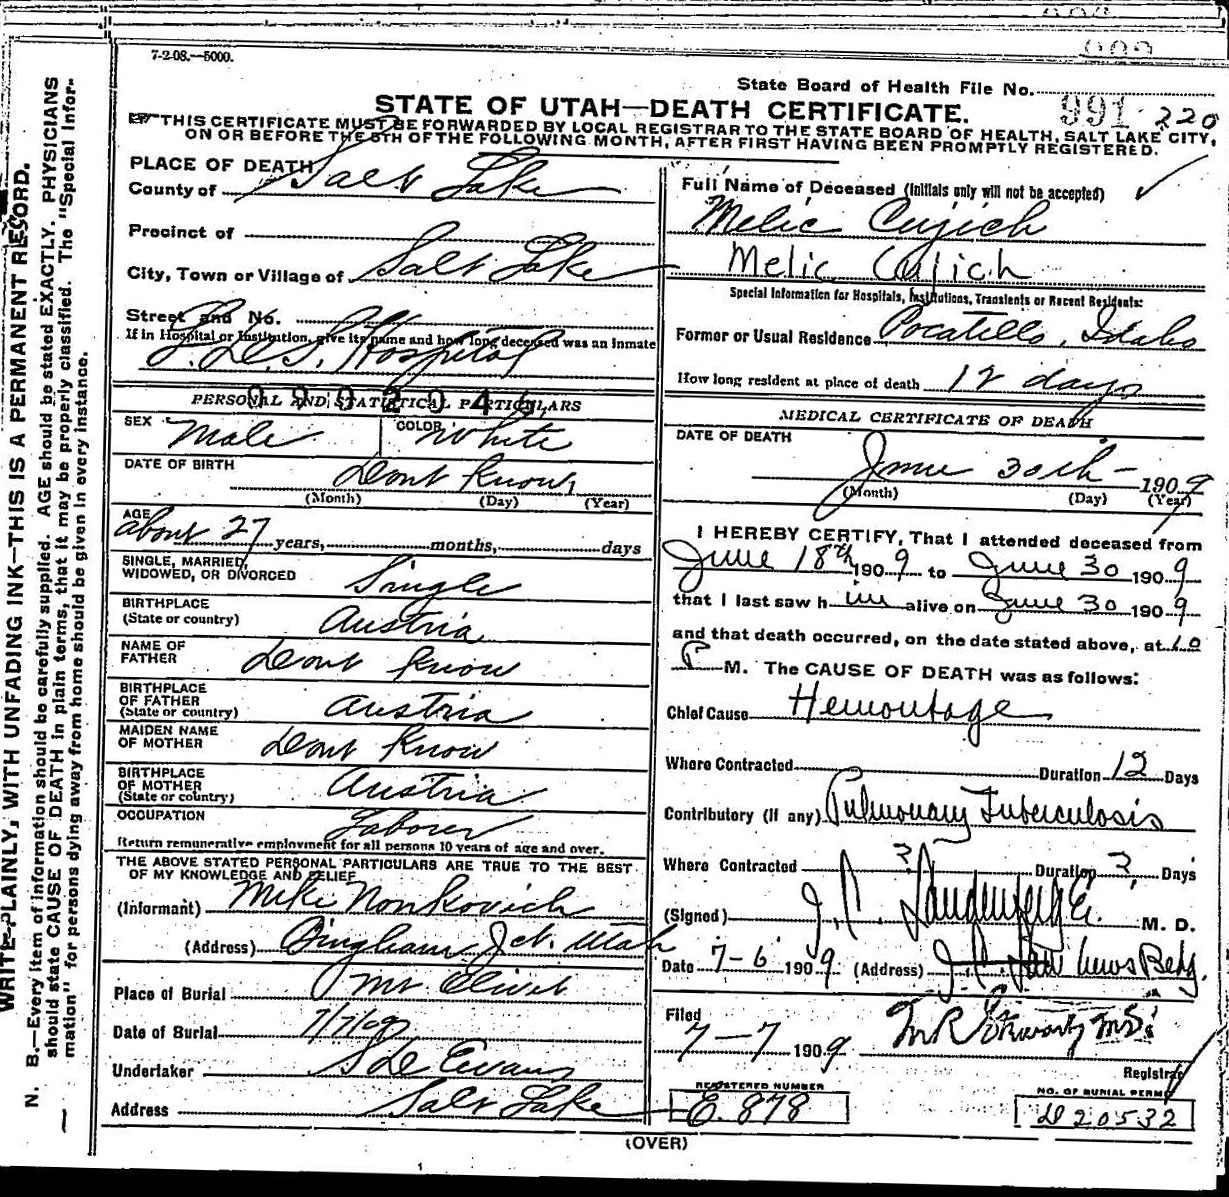 7-2-08.—5000.
State Board of Health File No.
991 220
STATE OF UTAH—DEATH CERTIFICATE.
THIS CERTIFICATE MUST BE FORWARDED BY LOCAL REGISTRAR TO THE STATE BOARD OF HEALTH, SALT LAKE CITY,
ON OR BEFORE THE 5TH OF THE FOLLOWING MONTH, AFTER FIRST HAVING BEEN PROMPTLY REGISTERED.
WRITE PLAINLY, WITH UNFADING INK—THIS IS A PERMANENT RECORD.
N. B.—Every item of information should be carefully supplied. AGE should be stated EXACTLY. PHYSICIANS
should state CAUSE OF DEATH in plain terms, that it may be properly classified. The "Special Infor-
mation" for persons dying away from home should be given in every instance.
PLACE OF DEATH
County of Salt Lake
Precinct of
City, Town or Village of Salt Lake
Street and No.
If in Hospital or Institution, give its name and how long deceased was an inmate
L.D.S. Hospital
PERSONAL AND STATISTICAL PARTICULARS
SEX Male COLOR White
DATE OF BIRTH Dont Know
(Month) (Day) (Year)
AGE about 27 years, months, days
SINGLE, MARRIED,
WIDOWED, OR DIVORCED Single
BIRTHPLACE
(State or country) Austria
NAME OF
FATHER Dont Know
BIRTHPLACE
OF FATHER
(State or country) Austria
MAIDEN NAME
OF MOTHER Dont Know
BIRTHPLACE
OF MOTHER
(State or country) Austria
OCCUPATION Laborer
Return remunerative employment for all persons 10 years of age and over.
THE ABOVE STATED PERSONAL PARTICULARS ARE TRUE TO THE BEST
OF MY KNOWLEDGE AND BELIEF
(Informant) Mike Nonkovich
(Address) Bingham Jct. Utah
Place of Burial Mt Olivet
Date of Burial 7/7/09
Undertaker S D Evans
Address Salt Lake
Full Name of Deceased (Initials only will not be accepted)
Melic Cujich
Melic Cujich
Special Information for Hospitals, Institutions, Transients or Recent Residents:
Former or Usual Residence Pocatello, Idaho
How long resident at place of death 12 days
MEDICAL CERTIFICATE OF DEATH
DATE OF DEATH
June 30th - 1909
(Month) (Day) (Year)
I HEREBY CERTIFY, That I attended deceased from
June 18th 1909 to June 30 1909
that I last saw h im alive on June 30 1909
and that death occurred, on the date stated above, at 10
P M. The CAUSE OF DEATH was as follows:
Chief Cause Hemorrhage
Where Contracted Duration 12 Days
Contributory (If any) Pulmonary Tuberculosis
Where Contracted ? Duration ? Days
(Signed) J. C. M. D.
Date 7-6 1909 (Address) News Bldg.
Filed
7-7 1909 Registrar
REGISTERED NUMBER
E. 878
NO. OF BURIAL PERMIT
D 20532
(OVER)